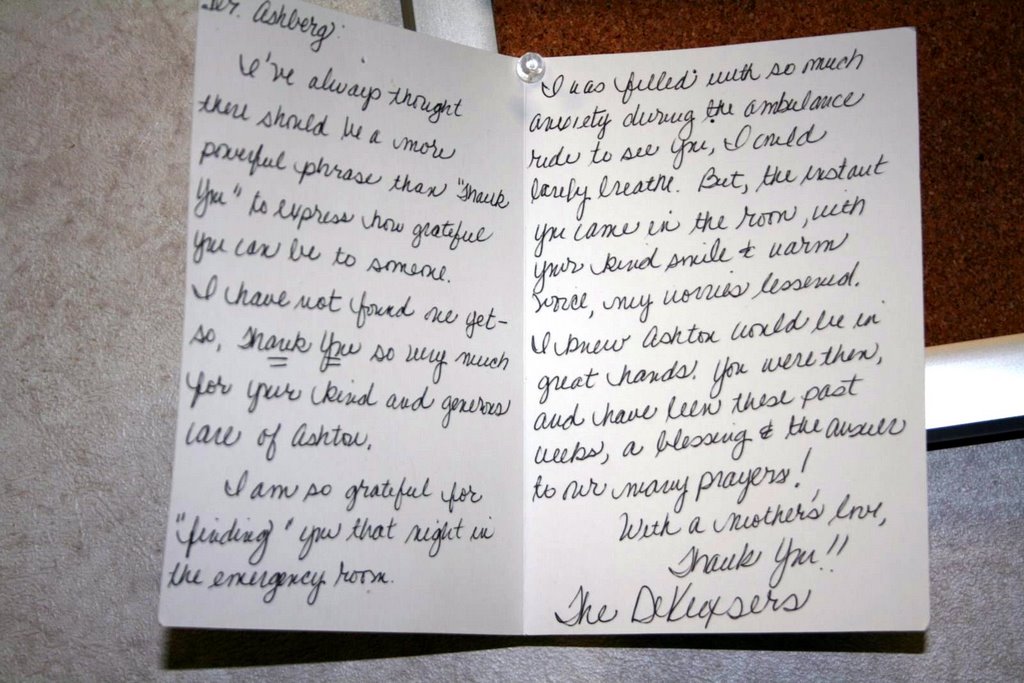 Dr. Ashberg:
I've always thought
there should be a more
powerful phrase than "Thank
You" to express how grateful
you can be to someone.
I have not found one yet-
so, Thank You so very much
for your kind and generous
care of Ashton.
I am so grateful for
"finding" you that night in
the emergency room.
I was filled with so much
anxiety during the ambulance
ride to see you, I could
barely breathe. But, the instant
you came in the room, with
your kind smile & warm
voice, my worries lessened.
I knew Ashton would be in
great hands! You were then,
and have been these past
weeks, a blessing & the answer
to our many prayers!
With a mother's love,
Thank You!!
The